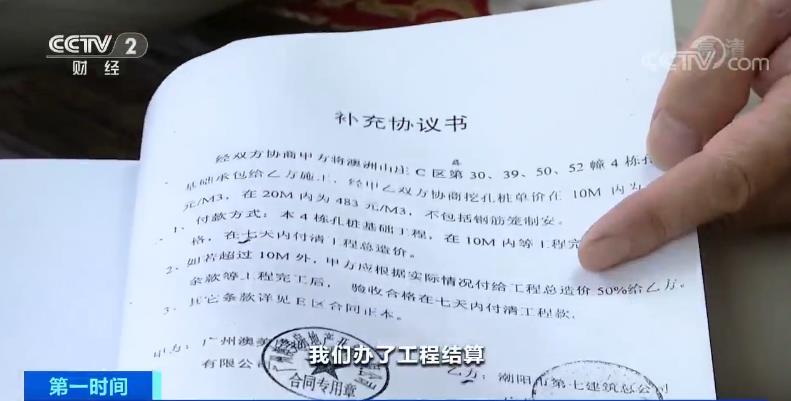 CCTV 2
财经
CCTV 高清
com
补充协议书
经双方协商甲方将澳洲山庄C区第30、39、50、52幢4栋孔
基础承包给乙方施工、经甲乙双方协商挖孔桩单价在10M内为
元/M3，在20M内为483元/M3，不包括钢筋笼制安。
1、付款方式：本4栋孔桩基础工程，在10M内等工程完
格，在七天内付清工程总造价。
2、如若超过10M外，甲方应根据实际情况付给工程总造价50%给乙方。
余款等工程完工后，验收合格在七天内付清工程款，
3、其它条款详见E区合同正本。
甲方：广州澳美
地产
有限公司
合同专用章
乙方：潮阳市第七建筑总公司
我们办了工程结算
第一时间